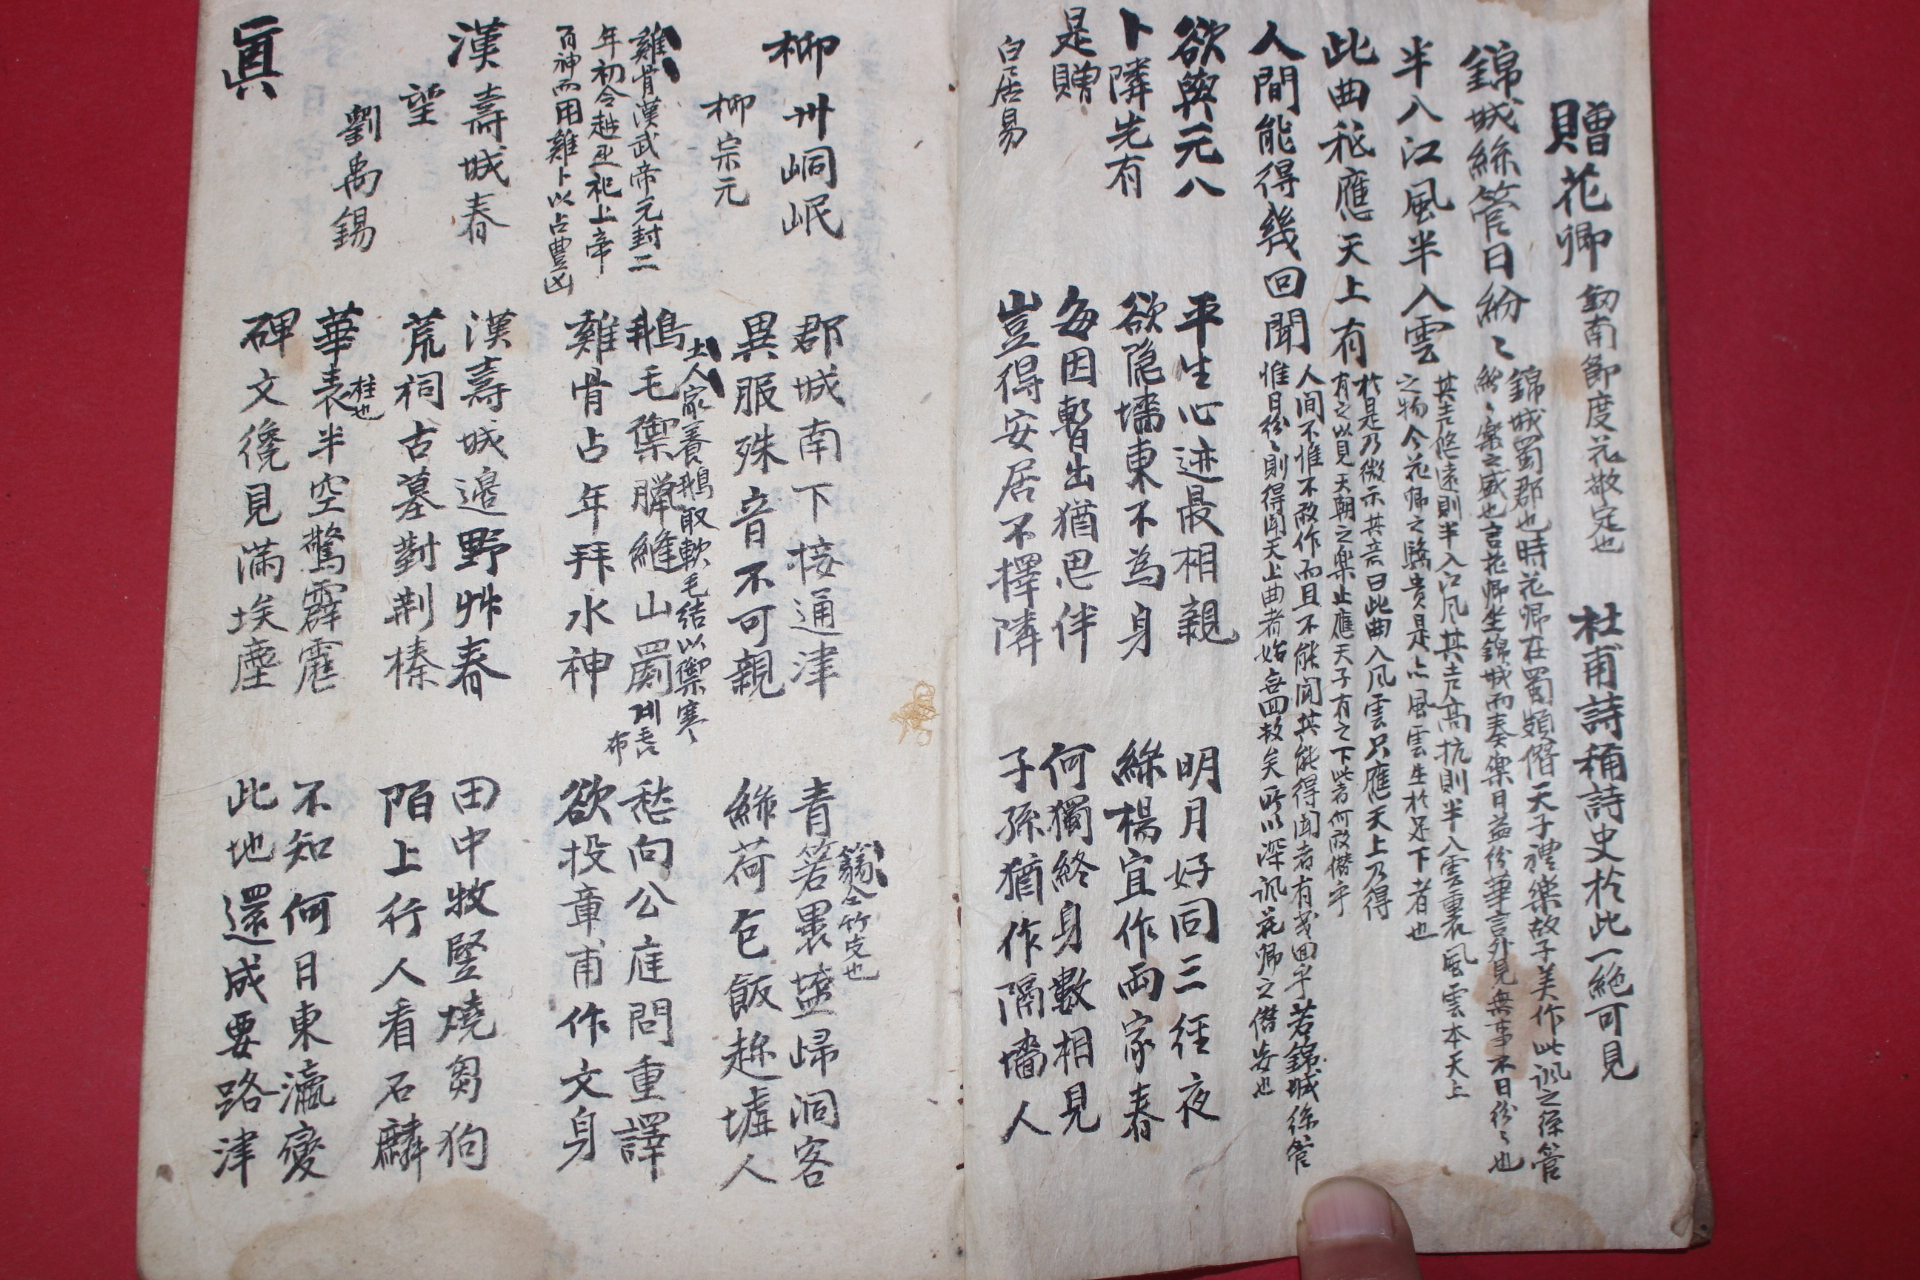 贈花卿 釰南節度花敬定也 杜甫詩稱詩史於此一絶可見
錦城絲管日紛〻 錦城蜀郡也時花卿在蜀頗僭天子禮樂故子美作此諷之絲管
紛〻樂之盛也言花卿坐錦城而奏樂日益紛華言外見無事不日紛〻也
半入江風半入雲 其音悠遠則半入江风其音高抗則半入雲裏風雲本天上
之物今花卿之驕貴是以風雲生於足下者也
此曲秪應天上有 於是乃微示其意曰此曲入风雲只應天上乃得
有之以見天朝之樂止應天子有之下此者何敢僭乎
人間能得幾回聞 人间不惟不敢作而且不能闻其能得闻者有幾囬乎若錦城絲管
惟日紛〻則得闻天上曲者始無囬数矣所以深諷花卿之僭妄也
欲與元八 平生心迹最相親 明月好同三徑夜
卜隣先有 欲隐墻東不為身 綠楊宜作両家春
是贈 每因暫出猶思伴 何獨終身數相見
白居易 豈得安居不擇隣 子孫猶作隔墻人
柳州峒岷 郡城南下接通津 青箬裹鹽歸洞客
蒻仝竹皮也
柳宗元 異服殊音不可親 綠荷包飯趂墟人
土人家養鵝取軟毛結以禦寒〻
雞骨漢武帝元封二 鵝毛禦臈縫山罽 계音 布 愁向公庭問重譯
年初令越巫祀上帝 雞骨占年拜水神 欲投章甫作文身
百神而用雞卜以占豊凶
漢壽城春 漢壽城邉野艸春 田中牧竪燒芻狗
望 荒祠古墓對荆榛 陌上行人看石麟
劉禹錫 華表半空驚霹靂 不知何日東瀛變
柱也
碑文纔見滿埃塵 此地還成要路津
眞